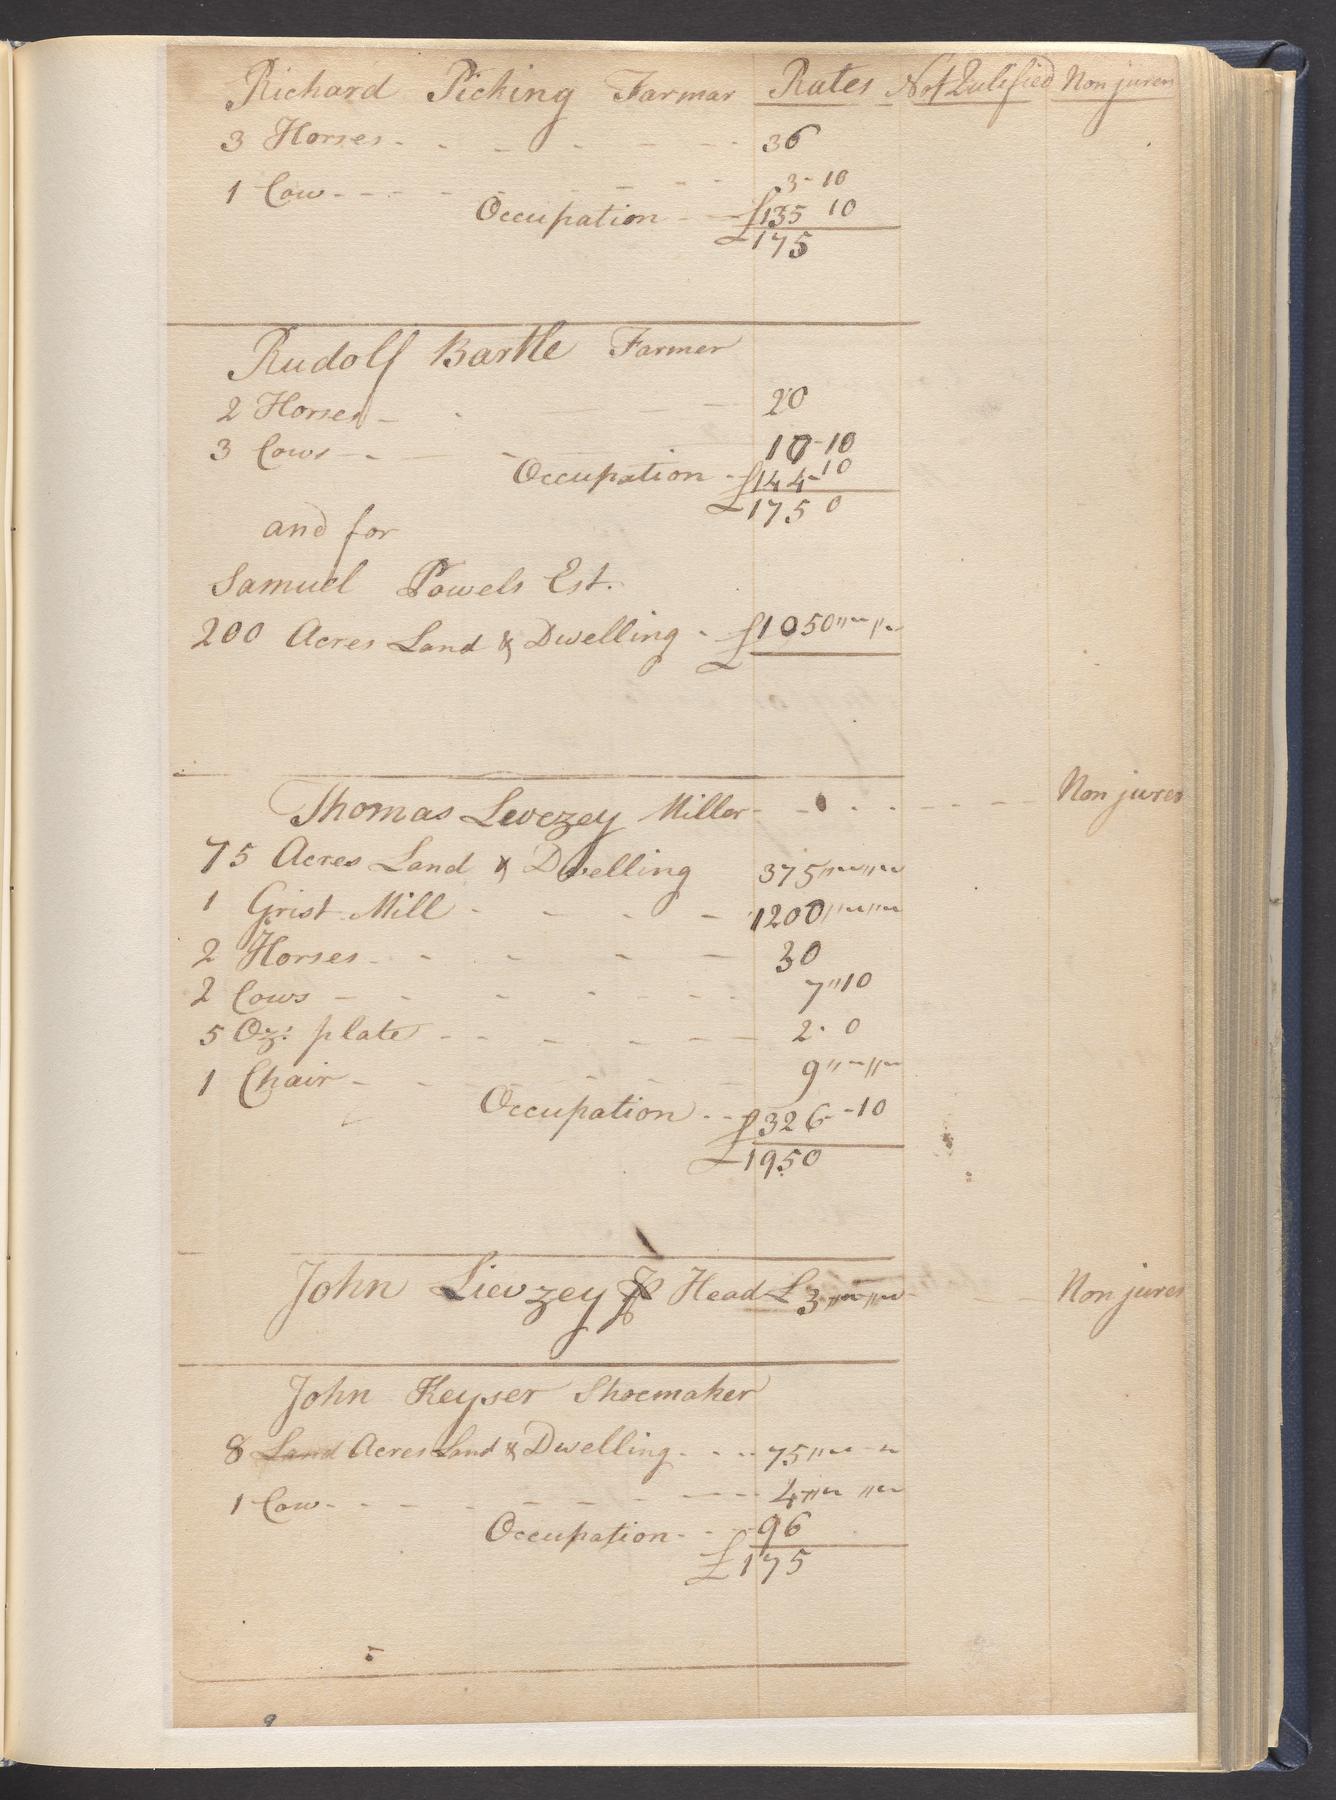 Richard Piching Farmar Rates Not Qulified Non juren
3 Horses - - - - - - - 36
1 Cow - - - - - - - 3 - 10
Occupation - - £135 10
£175
Rudolf Bartle Farmer
2 Horses - - - - 20
3 Cows - - - - 10 - 10
Occupation - £144 - 10
£175 0
and for
Samuel Powels Est.
200 Acres Land & Dwelling - £1050 " "
Thomas Levezey Miller - - - - - - - Non jures
75 Acres Land & Dwelling 375 " "
1 Grist Mill - - - - 1200 " "
2 Horses - - - - 30
2 Cows - - - - - - 7 " 10
5 Oz: plate - - - - - - 2 . 0
1 Chair - - - - - 9 " "
Occupation - - £326 - 10
£1950
John Lievzey ⅌ Head £ 3 " " - - - Non jures
John Keyser Shoemaker
8 Land Acres Land & Dwelling - - - 75 " "
1 Cow - - - - - - - - 4 " "
Occupation - - - 96
£175